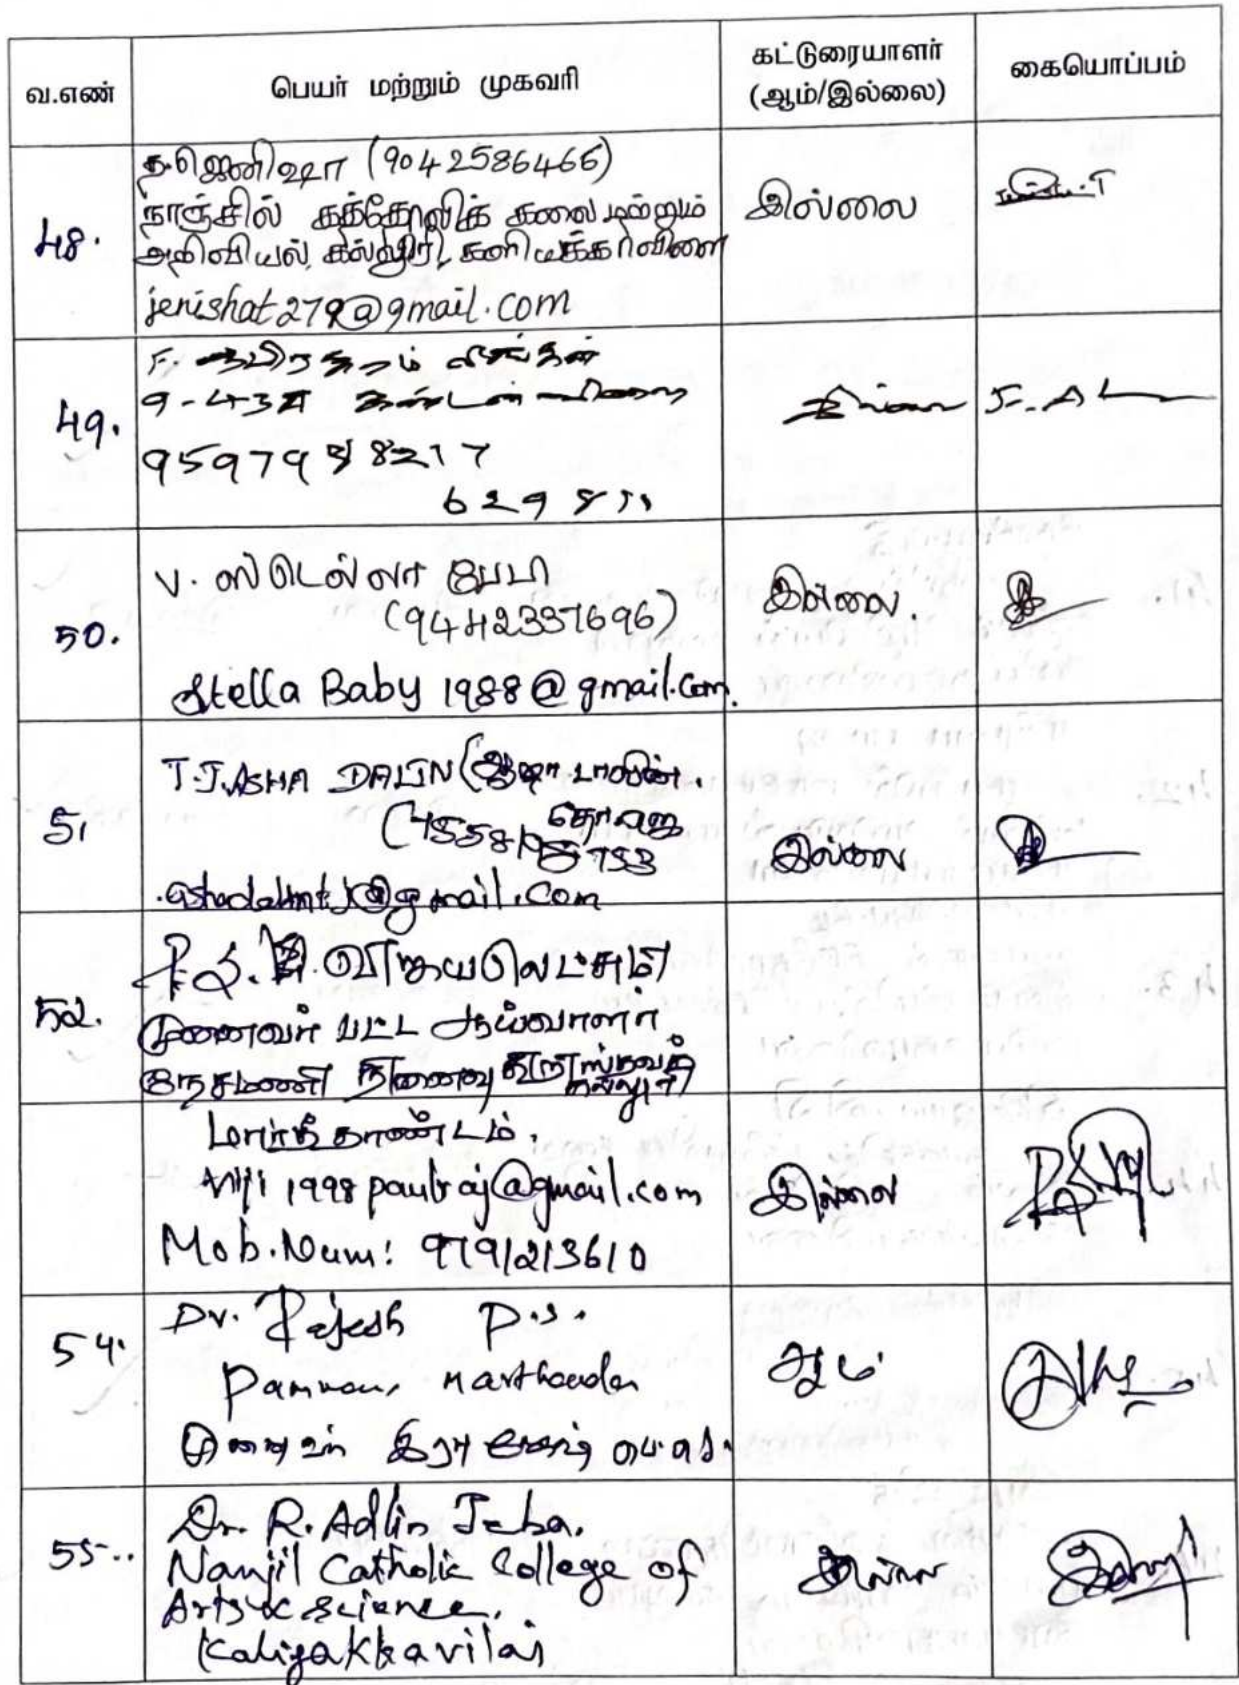 வ.எண்
பெயர் மற்றும் முகவரி
கட்டுரையாளர்
(ஆம்/இல்லை)
கையொப்பம்
48.
த.ஜெனிஷா (9042586466)
நாஞ்சில் கத்தோலிக் கலை மற்றும்
அறிவியல் கல்லூரி, களியக்காவிளை
jenishat279@gmail.com
இல்லை
49.
F.
இல்லை
50.
V. ஸ்டெல்லா பேபி
(9442337696)
Stella Baby 1988@gmail.com.
இல்லை.
51
T.J.ASHA DALIN (ஆஷா டாலின்.
இல்லை
@gmail.com
52.
P.S. விஜயலெட்சுமி
முனைவர் பட்ட ஆய்வாளர்
நேசமணி நினைவு கிறிஸ்தவக்
கல்லூரி
மார்த்தாண்டம்.
1998paulraj@gmail.com
Mob.Num: 9791213610
இல்லை
54.
Dr. Rajesh P.S.
Pammam, Marthandam
முனைவர்
ஆம்
55..
Dr. R. Adlin Jeba.
Nanjil Catholic College of
Arts & Science,
Kaliyakkavilai
இல்லை